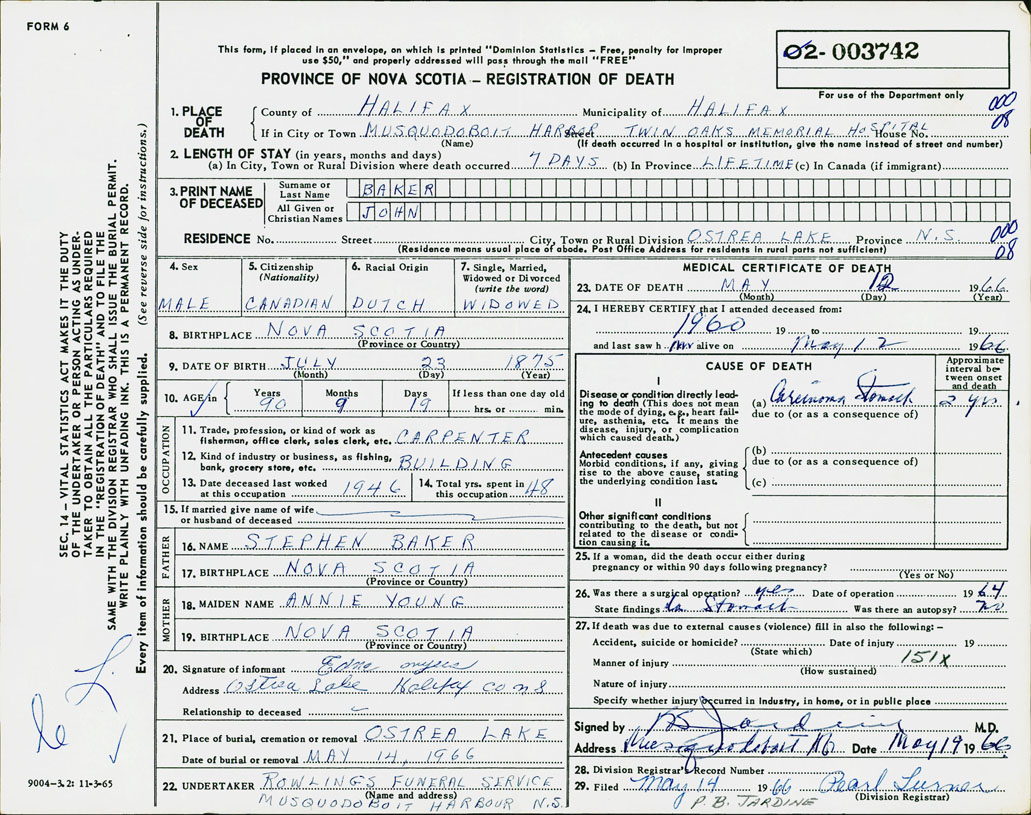 FORM 6
This form, if placed in an envelope, on which is printed "Dominion Statistics – Free, penalty for improper
use $50," and properly addressed will pass through the mail "FREE"
PROVINCE OF NOVA SCOTIA – REGISTRATION OF DEATH
02-003742
For use of the Department only
1. PLACE OF DEATH
County of HALIFAX Municipality of HALIFAX
000
08
If in City or Town MUSQUODOBOIT HARBOR Street TWIN OAKS MEMORIAL HOSPITAL House No.
(Name) (If death occurred in a hospital or institution, give the name instead of street and number)
2. LENGTH OF STAY (in years, months and days)
(a) In City, Town or Rural Division where death occurred 7 DAYS (b) In Province LIFETIME (c) In Canada (if immigrant)
3. PRINT NAME OF DECEASED
Surname or Last Name BAKER
All Given or Christian Names JOHN
RESIDENCE No. Street City, Town or Rural Division OSTREA LAKE Province N.S.
000
08
(Residence means usual place of abode. Post Office Address for residents in rural ports not sufficient)
4. Sex
MALE
5. Citizenship
(Nationality)
CANADIAN
6. Racial Origin
DUTCH
7. Single, Married,
Widowed or Divorced
(write the word)
WIDOWED
8. BIRTHPLACE NOVA SCOTIA
(Province or Country)
9. DATE OF BIRTH JULY 23 1875
(Month) (Day) (Year)
10. AGE in
Years Months Days If less than one day old
90 9 19 hrs. or min.
OCCUPATION
11. Trade, profession, or kind of work as
fisherman, office clerk, sales clerk, etc. CARPENTER
12. Kind of industry or business, as fishing,
bank, grocery store, etc. BUILDING
13. Date deceased last worked
at this occupation 1946
14. Total yrs. spent in
this occupation 48
15. If married give name of wife
or husband of deceased
FATHER
16. NAME STEPHEN BAKER
17. BIRTHPLACE NOVA SCOTIA
(Province or Country)
MOTHER
18. MAIDEN NAME ANNIE YOUNG
19. BIRTHPLACE NOVA SCOTIA
(Province or Country)
20. Signature of informant Edna Myers
Address Ostrea Lake Halifax Co N S
Relationship to deceased
21. Place of burial, cremation or removal OSTREA LAKE
Date of burial or removal MAY 14, 1966
22. UNDERTAKER ROWLINGS FUNERAL SERVICE
(Name and address)
MUSQUODOBOIT HARBOUR N.S.
MEDICAL CERTIFICATE OF DEATH
23. DATE OF DEATH MAY 12 1966
(Month) (Day) (Year)
24. I HEREBY CERTIFY that I attended deceased from:
1960 19 to 19
and last saw h im alive on May 12 1966
CAUSE OF DEATH
Approximate
interval be-
tween onset
and death
I
Disease or condition directly lead-
ing to death (This does not mean
the mode of dying, e.g., heart fail-
ure, asthenia, etc. It means the
disease, injury, or complication
which caused death.)
(a) Carcinoma Stomach 2 yrs.
due to (or as a consequence of)
Antecedent causes
Morbid conditions, if any, giving
rise to the above cause, stating
the underlying condition last.
(b)
due to (or as a consequence of)
(c)
II
Other significant conditions
contributing to the death, but not
related to the disease or condi-
tion causing it.
25. If a woman, did the death occur either during
pregnancy or within 90 days following pregnancy?
(Yes or No)
26. Was there a surgical operation? yes Date of operation 1964
State findings Ca Stomach Was there an autopsy? no
27. If death was due to external causes (violence) fill in also the following: –
Accident, suicide or homicide? Date of injury 19
(State which)
151X
Manner of injury
(How sustained)
Nature of injury
Specify whether injury occurred in Industry, in home, or in public place
Signed by P B Jardine M.D.
Address Musquodoboit Hb Date May 19 1966
28. Division Registrar's Record Number
29. Filed May 14 1966 Pearl Turner
(Division Registrar)
P. B. JARDINE
SEC. 14 – VITAL STATISTICS ACT MAKES IT THE DUTY
OF THE UNDERTAKER OR PERSON ACTING AS UNDER-
TAKER TO OBTAIN ALL THE PARTICULARS REQUIRED
IN THE "REGISTRATION OF DEATH" AND TO FILE THE
SAME WITH THE DIVISION REGISTRAR WHO SHALL ISSUE THE BURIAL PERMIT.
WRITE PLAINLY WITH UNFADING INK. THIS IS A PERMANENT RECORD.
Every item of information should be carefully supplied. (See reverse side for instructions.)
9004-3.2: 11-3-65